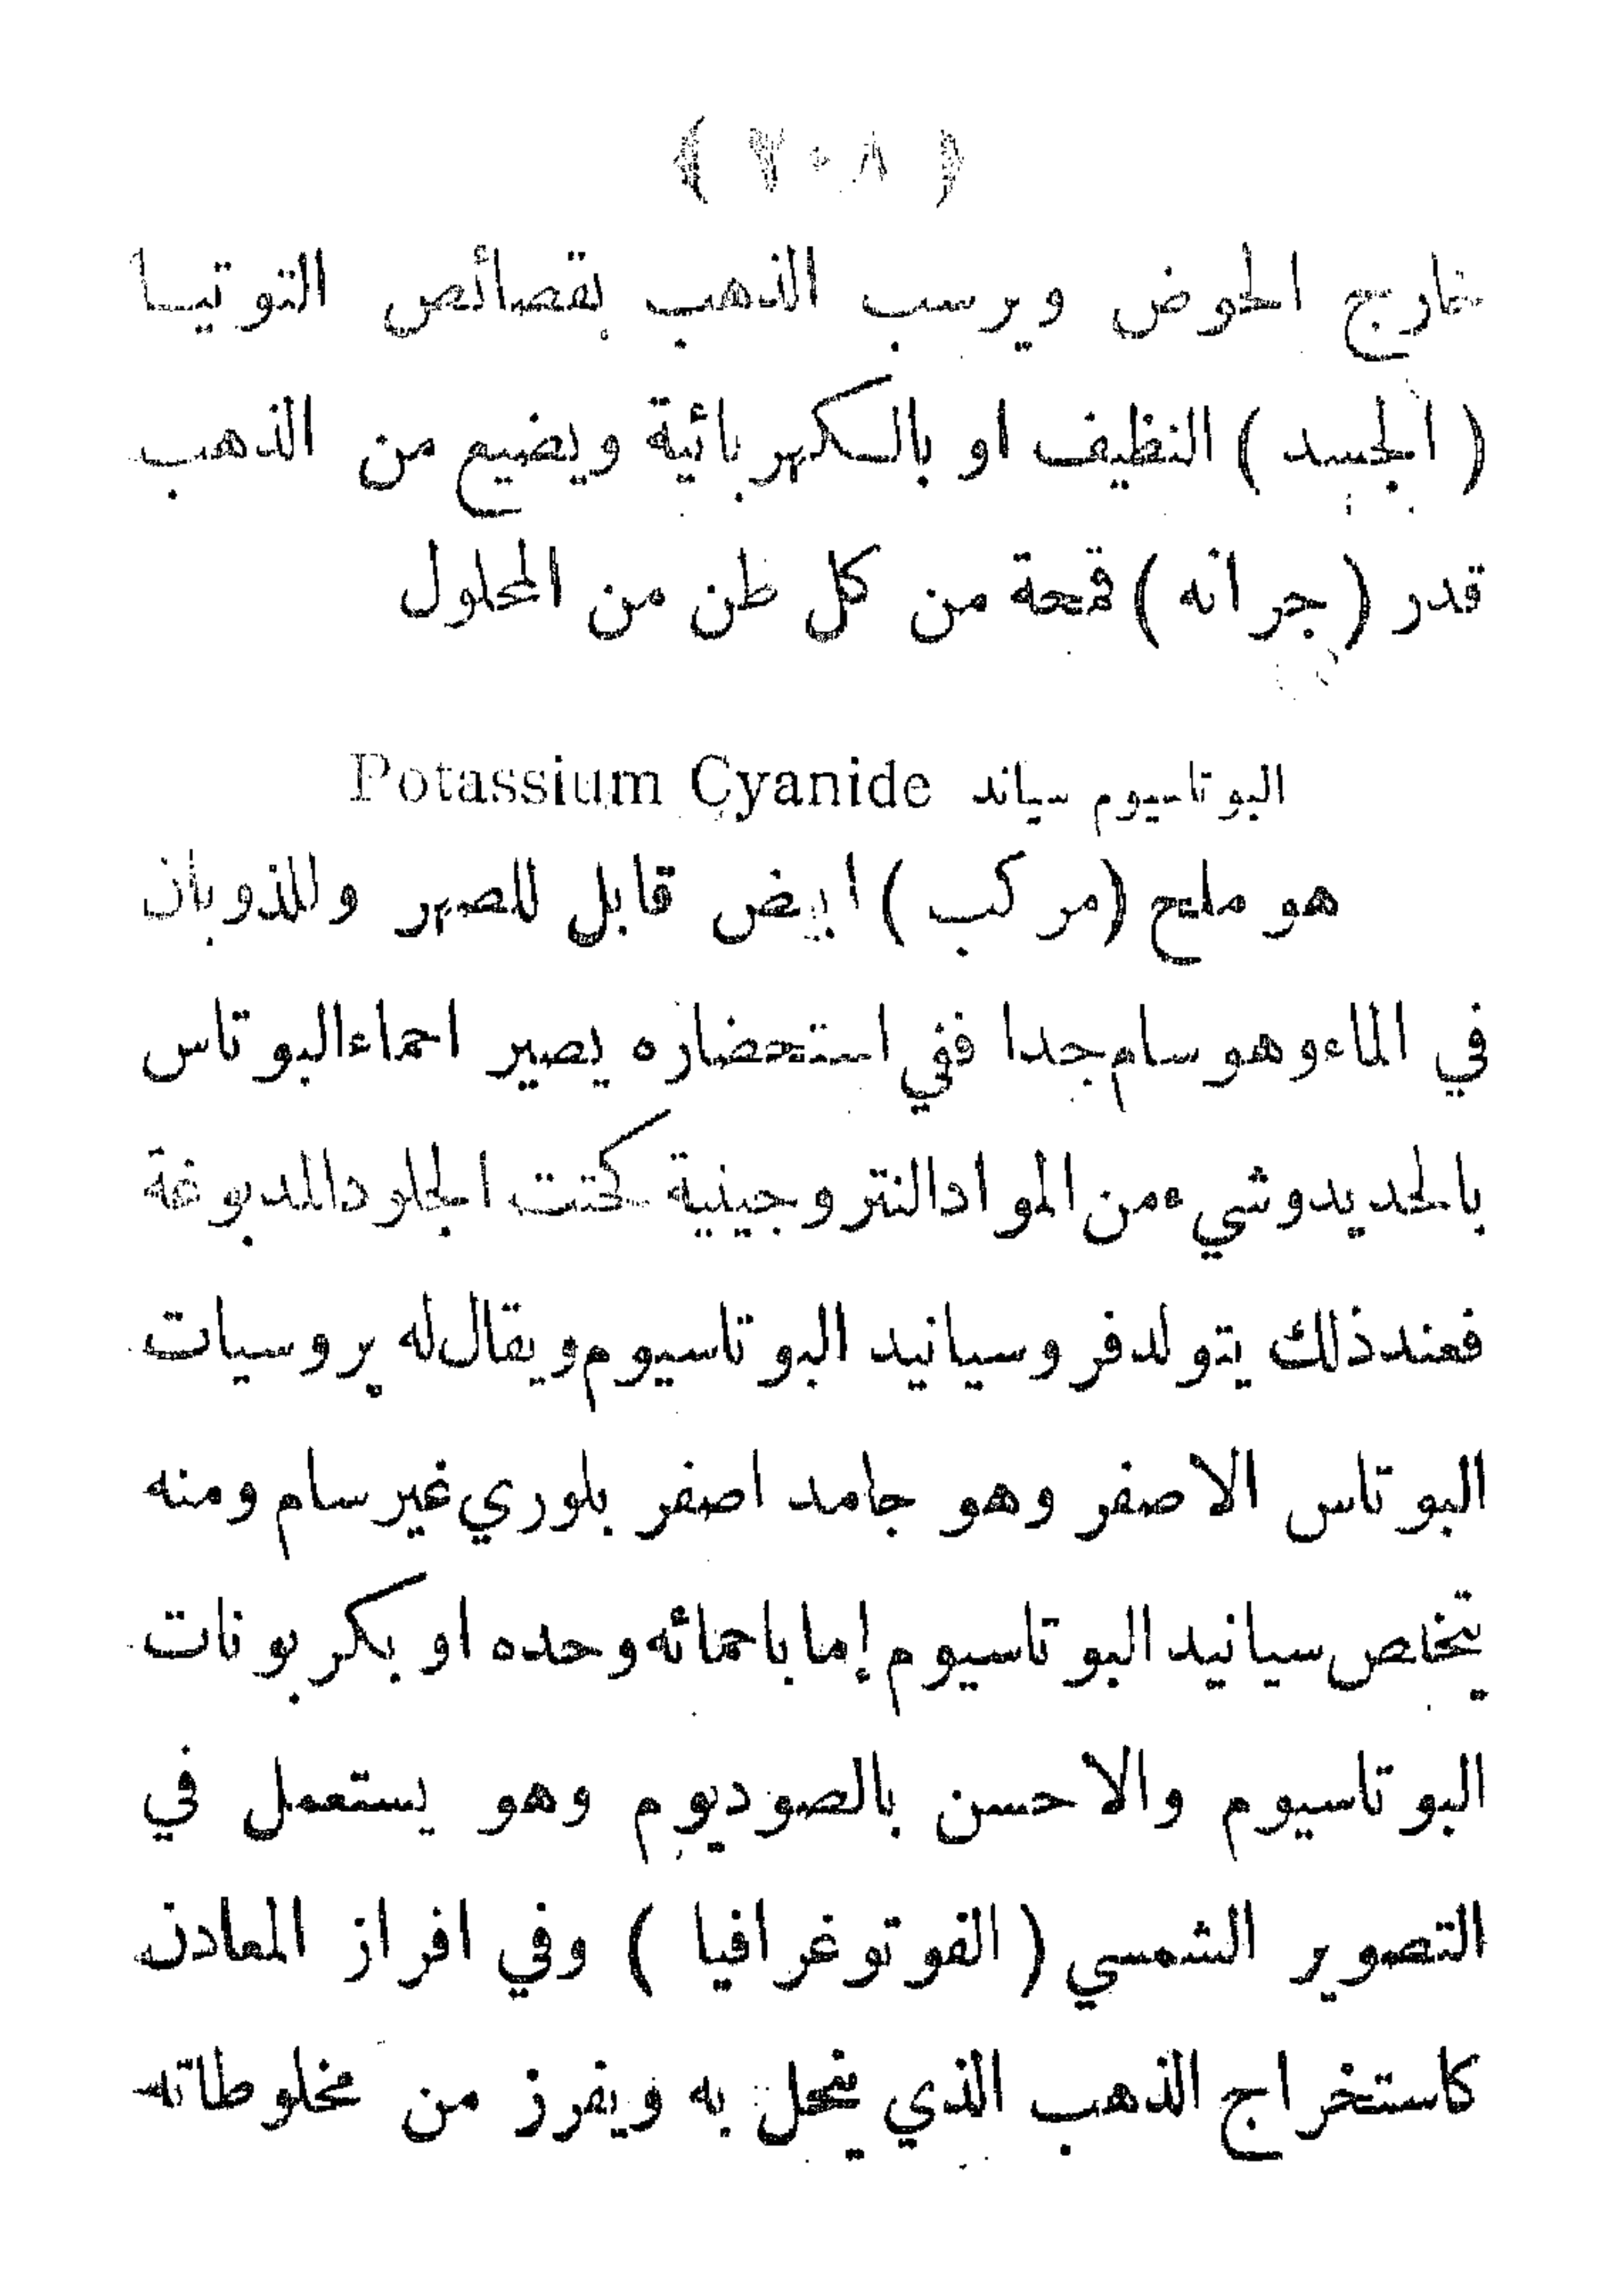 ( ٢٠٨ )
خارج الحوض ويرسب الذهب بقصائص التوتيا
( الجسد ) النظيف او بالكهربائية ويضيع من الذهب
قدر ( جرانه ) قمحة من كل طن من المحلول
البوتاسيوم سياند Potassium Cyanide
هو ملح (مركب ) ابيض قابل للصهر وللذوبان
في الماء وهو سام جدا ففي استحضاره يصير احماء البوتاس
بالحديد وشيء من المواد النتروجينية كحتت الجلود المدبوغة
فعند ذلك يتولد فروسيانيد البوتاسيوم ويقال له پروسيات
البوتاس الاصفر وهو جامد اصفر بلوري غير سام ومنه
يتخلص سيانيد البوتاسيوم إما باحمائه وحده او بكربونات
البوتاسيوم والاحسن بالصوديوم وهو يستعمل في
التصوير الشمسي ( الفوتوغرافيا ) وفي افراز المعادن
كاستخراج الذهب الذي ينحل به ويفرز من مخلوطاته